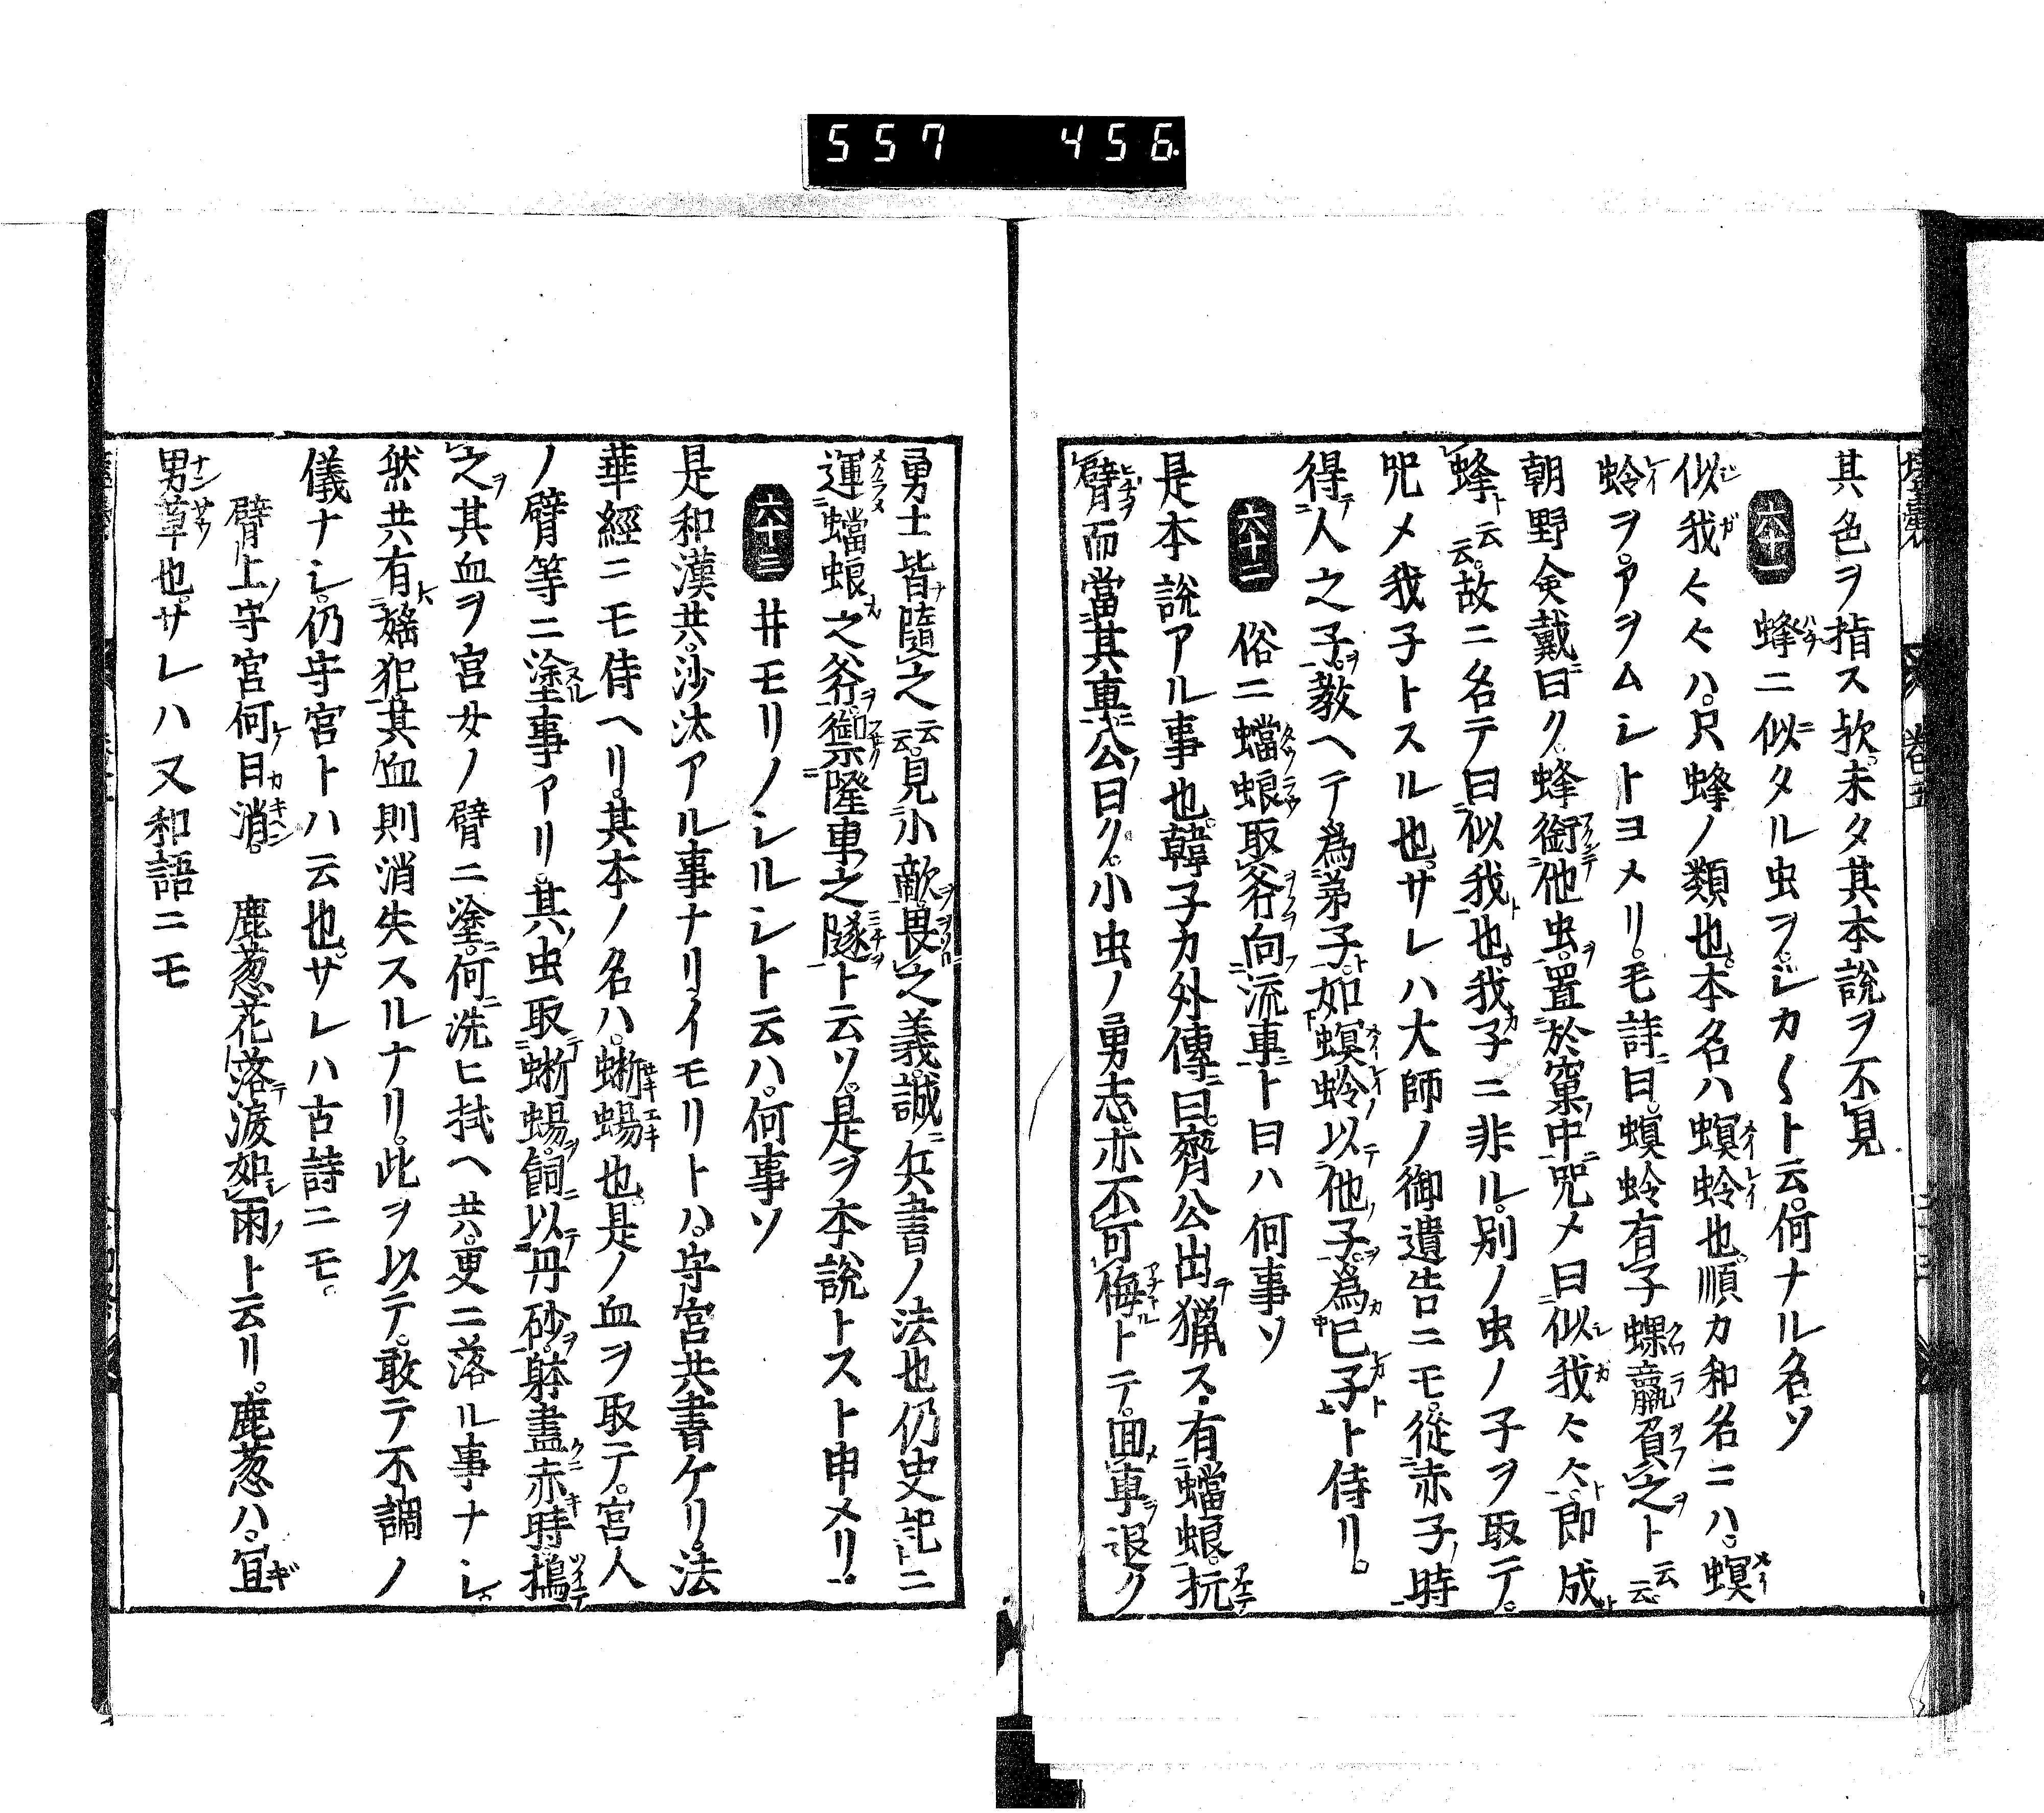 557 456
其色ヲ指ス歟。未タ其本說ヲ不見
六十一 蜂ニ似タル虫ヲ。ジカ〱ト云。何ナル名ソ
似我〻〻ハ。尺蜂ノ類也。本名ハ螟蛉也。順カ和名ニハ。螟
蛉ヲ。アヲムシトヨメリ。毛詩曰。螟蛉有子蜾蠃負之ト云云
朝野僉戴曰ク。蜂銜他虫。置於窠中。咒メ曰似我〻〻。即成
蜂ト云云。故ニ名テ曰似我也。我子ニ非ル。別ノ虫ノ子ヲ取テ。
咒メ我子トスル也。サレハ大師ノ御遺告ニモ。從赤子時
得人之子。教ヘテ爲弟子。如螟蛉以他子。爲已子ト侍リ。
六十二 俗ニ蟷蜋取斧向流車ト曰ハ何事ソ
是本說アル事也。韓子カ外傳曰。齊公出獵ス。有蟷蜋。抗
臂而當其車。公曰ク。小虫ノ勇志。亦不可侮トテ。回車退ク
勇士皆隨之云云。見小敵畏之義。誠兵書ノ法也仍史記ニ
運蟷蜋之斧。禦隆車之隧ト云ソ。是ヲ本說トスト申メリ。
六十三 井モリノシルシト云ハ。何事ソ
是和漢共。沙汰アル事ナリイモリトハ。守宮共書ケリ。法
華經ニモ侍ヘリ。其本ノ名ハ。蜥蜴也。是ノ血ヲ取テ。宮人
ノ臂等ニ塗事アリ。其虫取蜥蜴。飼以丹砂。躰盡赤時。搗
之其血ヲ宮女ノ臂ニ塗。何洗ヒ拭ヘ共。更ニ落ル事ナシ。
然共有婬犯其血則消失スルナリ。此ヲ以テ。敢テ不調ノ
儀ナシ。仍守宮トハ云也。サレハ古詩ニモ。
臂上守宮何日消。 鹿葱花落淚如雨ト云リ。鹿葱ハ。宜
男草也。サレハ又和語ニモ